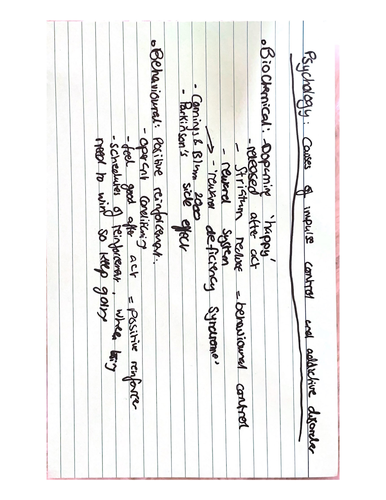 Psychology: Causes of impulse control and addictive disorder
• Biochemical: - Dopamine 'happy'
- released after act
- Striatum release = behavioural control
- reward system
→ - 'reward deficiency syndrome'
- Comings & Blum 2000
- Parkinson's side effect
• Behavioural: Positive reinforcement.
- operant conditioning
- feel good after act = positive reinforcer
- schedules of reinforcement, when
need to win so keep going